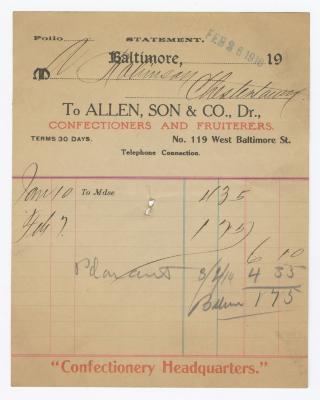 Folio STATEMENT.
FEB 28 1910
Baltimore, 19
M Robinson
Chestertown
To ALLEN, SON & CO., Dr.,
CONFECTIONERS AND FRUITERERS.
TERMS 30 DAYS. No. 119 West Baltimore St.
Telephone Connection.
Jan 10 To Mdse 4 35
Feb 7 1 75
6 10
3/2/10 4 35
Balance 1 75
"Confectionery Headquarters."